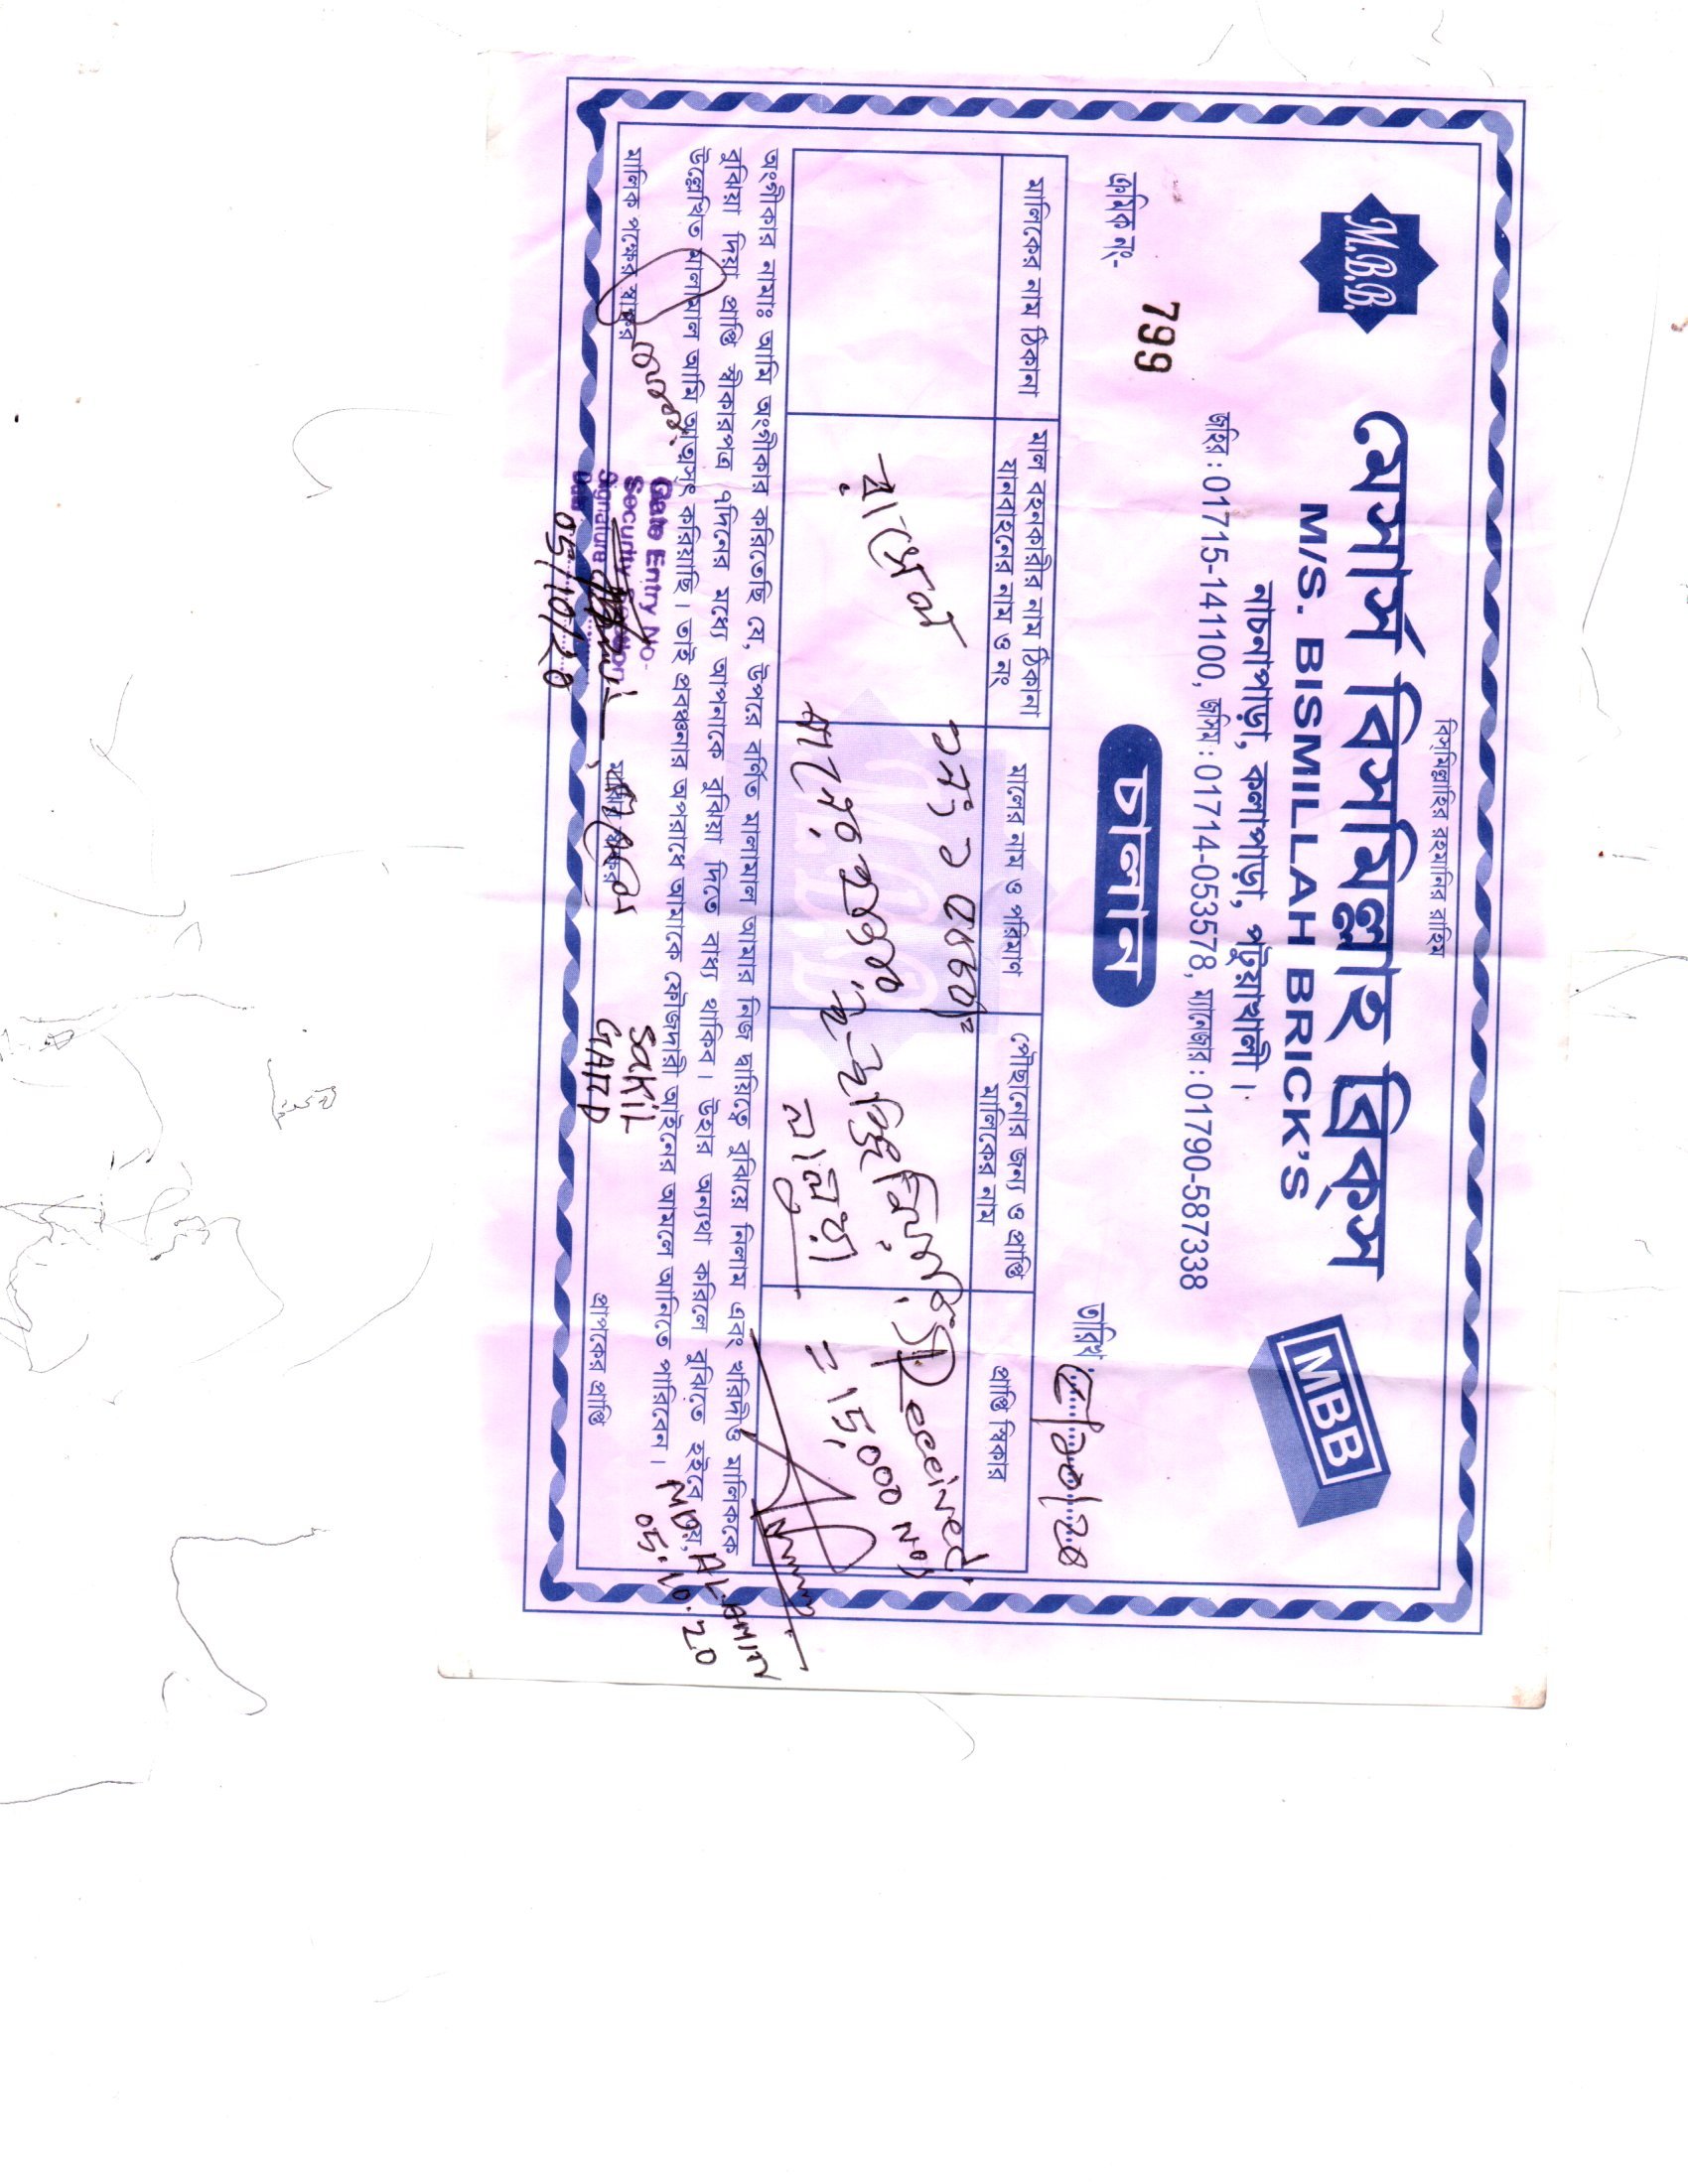 বিস্‌মিল্লাহির রহমানির রাহিম
M.B.B.
মেসার্স বিসমিল্লাহ ব্রিক্স
MBB
M/S. BISMILLAH BRICK'S
নাচনাপাড়া, কলাপাড়া, পটুয়াখালী।
জহির : 01715-141100, জসিম : 01714-053578, ম্যানেজার : 01790-587338
ক্রমিক নং- 799
চালান
তারিখ : ৫/১০/২০
মালিকের নাম ঠিকানা
মাল বহনকারীর নাম ঠিকানা
যানবাহনের নাম ও নং
মালের নাম ও পরিমাণ
পৌছানোর জন্য ও প্রাপ্তি
মালিকের নাম
প্রাপ্তি স্বিকার
১নং
Received
= 15,000 Nos
অংগীকার নামাঃ আমি অংগীকার করিতেছি যে, উপরে বর্ণিত মালামাল আমার নিজ দ্বায়িত্বে বুঝিয়ে নিলাম এবং খরিদ্দার মালিককে
বুঝিয়া দিয়া প্রাপ্তি স্বীকারপত্র ৭দিনের মধ্যে আপনাকে বুঝিয়া দিতে বাধ্য থাকিব। উহার অন্যথা করিলে বুঝিতে হইবে যে,
উল্লেখিত মালামাল আমি আত্মসাৎ করিয়াছি। তাই প্রবঞ্চনার অপরাধে আমাকে ফৌজদারী আইনের আমলে আনিতে পারিবেন।
MD. AL-AMIN
05.10.20
Gate Entry No-
Security Section
Signature
Date 05/10/20
SAKIL
GARD
মালিক পক্ষের স্বাক্ষর
মাঝির স্বাক্ষর
প্রাপকের প্রাপ্তি